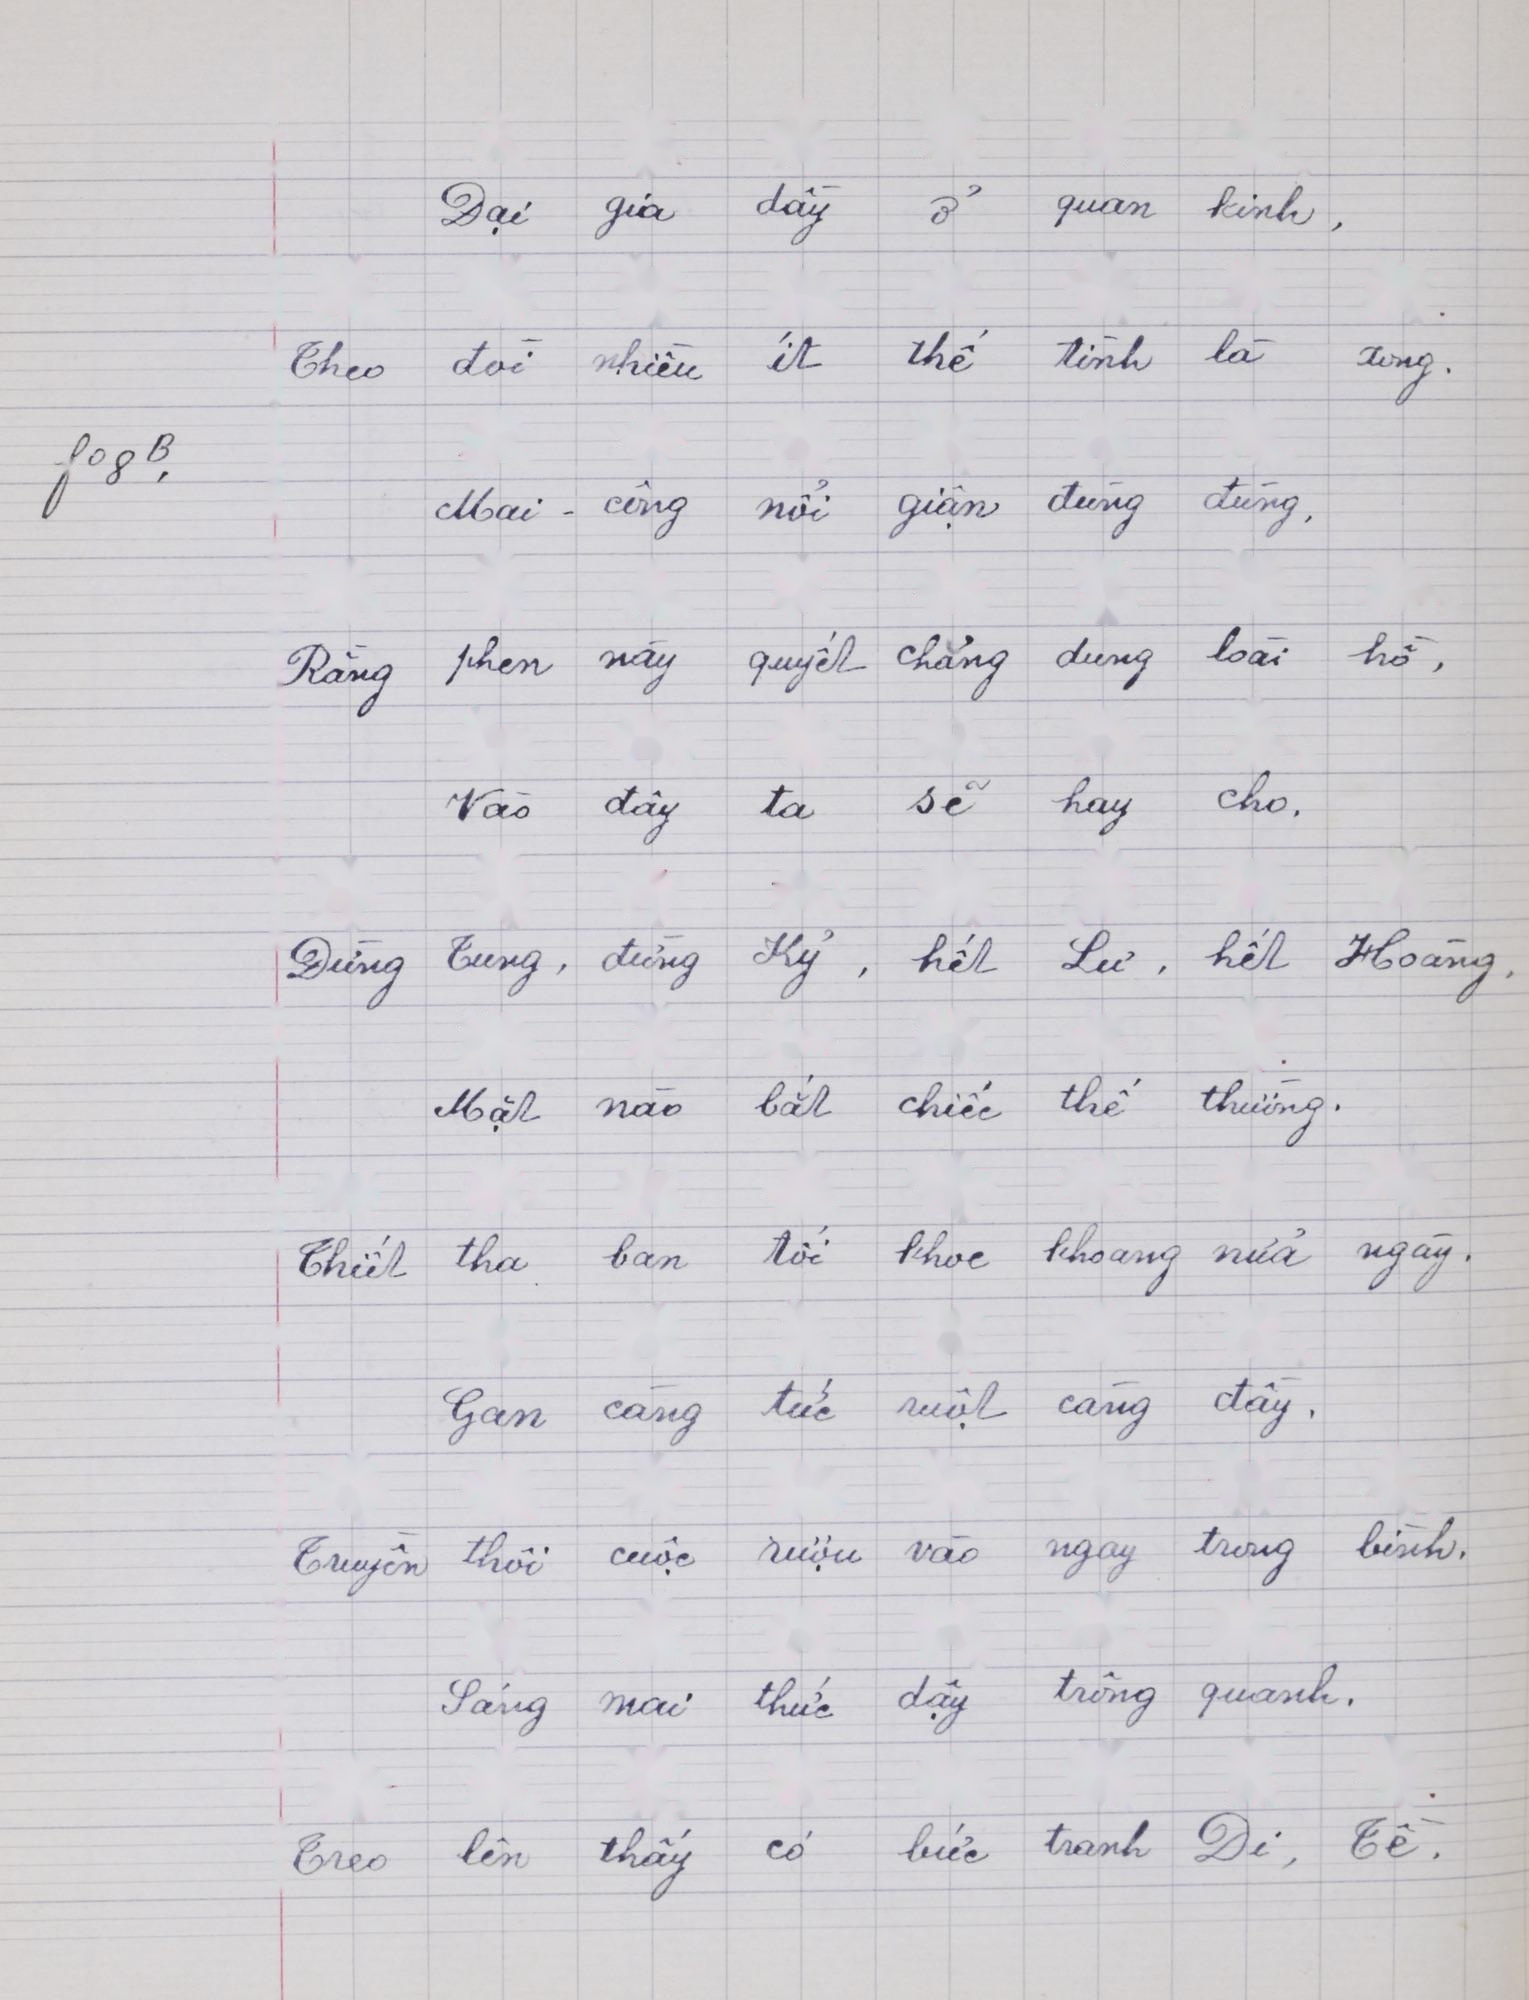 Đại gia dầy ở quan kinh,
Theo đòi nhiều ít thế tình là xong.
fo 8 B.
Mai - công nổi giận đùng đùng,
Rằng phen này quyết chẳng dung loài hồ,
Vào đây ta sẽ hay cho.
Đứng Tung, đứng Kỷ, hết Lư, hết Hoàng,
Mặt nào bắt chiếc thế thường.
Thiết tha ban tối khoe khoang nửa ngày.
Gan càng tức ruột càng đầy.
Truyền thôi cuộc rượu vào ngay trong bình.
Sáng mai thức dậy trông quanh.
Treo lên thấy có bức tranh Di, Tề.